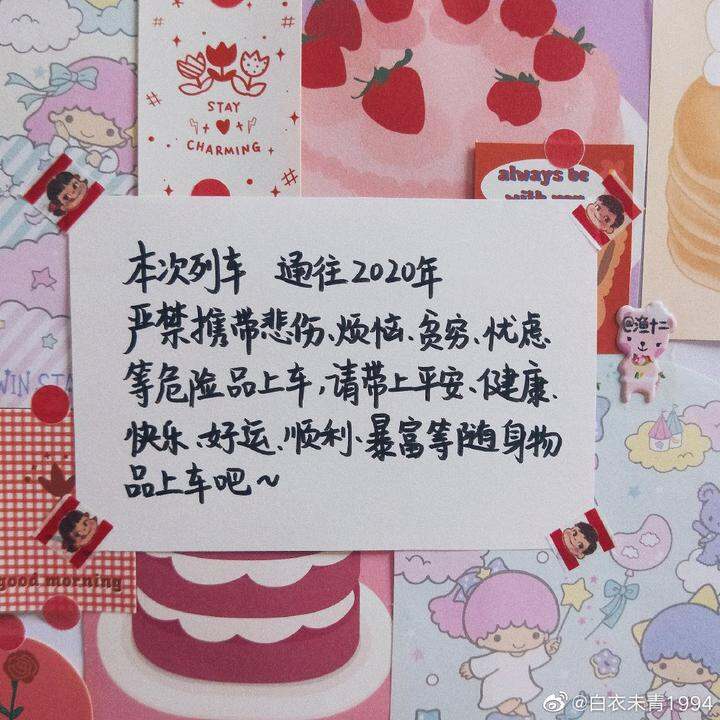 STAY
CHARMING
always be
本次列车 通往2020年
严禁携带悲伤、烦恼、贪穷、忧虑
等危险品上车,请带上平安、健康、
快乐、好运、顺利、暴富等随身物
品上车吧~
@渔十二
good morning
@白衣未青1994